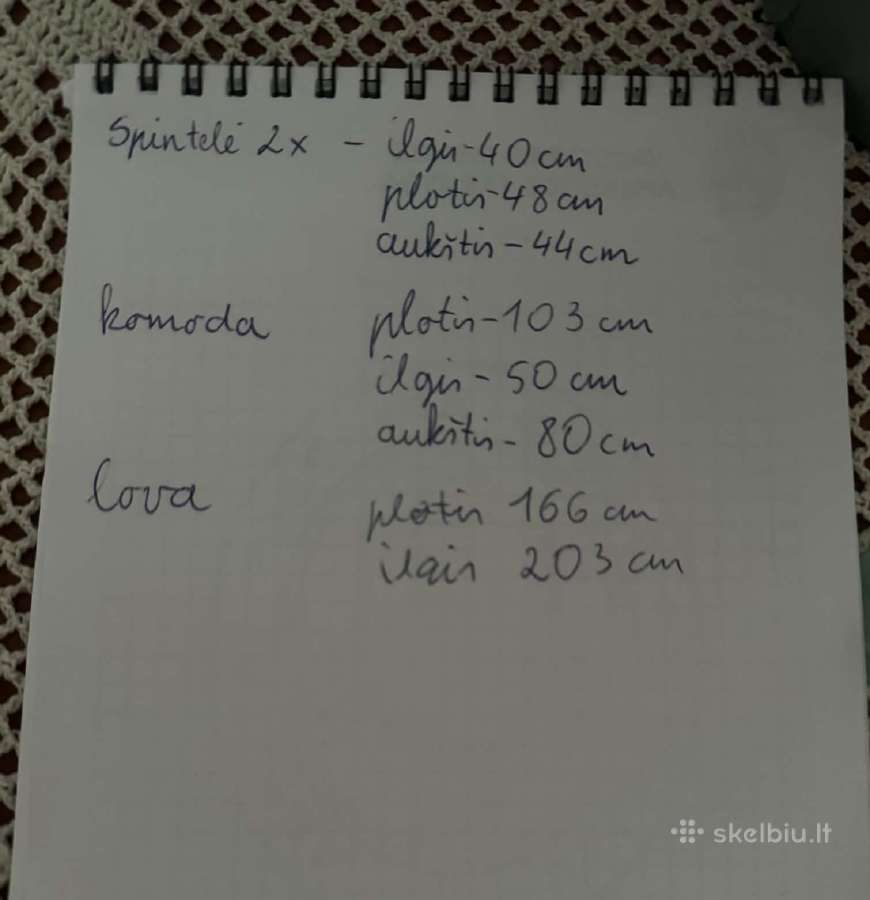 Spintelė 2x - ilgis-40cm
plotis-48cm
aukštis-44cm
komoda plotis-103 cm
ilgis-50 cm
aukštis-80cm
lova plotis 166 cm
ilgis 203 cm
skelbiu.lt